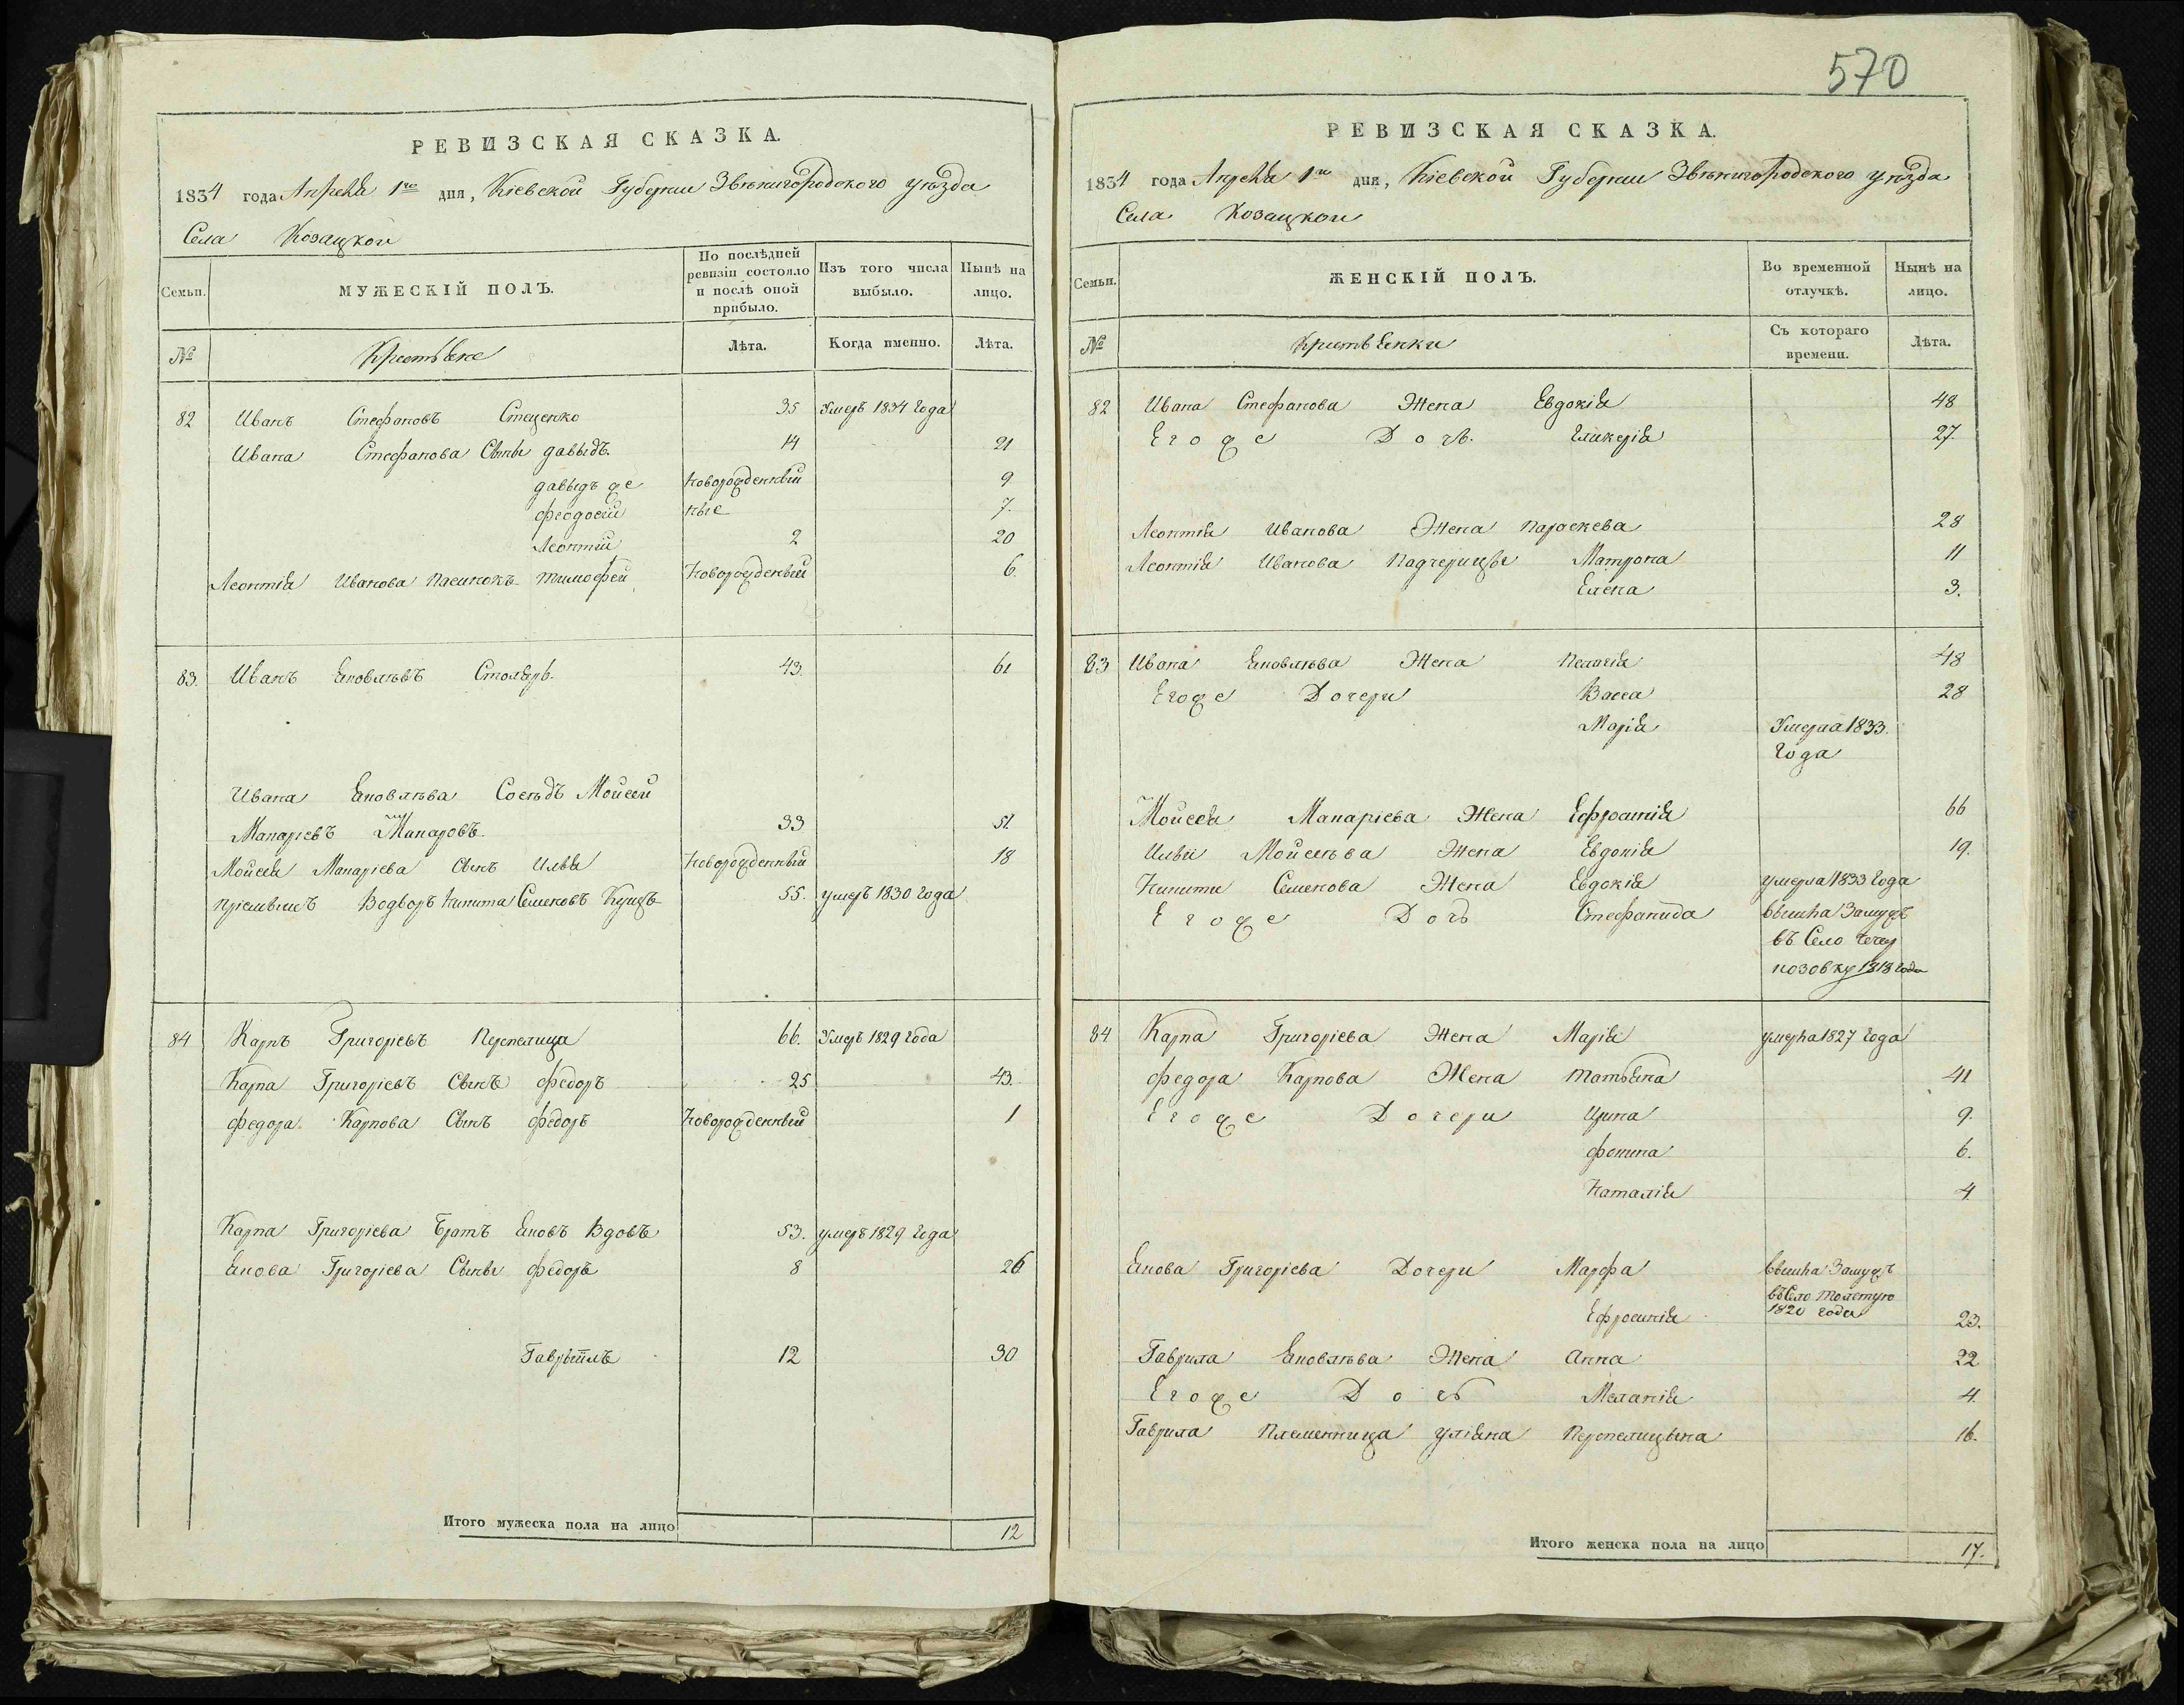 РЕВИЗСКАЯ СКАЗКА.
1834 года Апреля 1го дня, Кіевской Губерніи Звѣнигородского уѣзда
Села Козацкои
Семьи.
МУЖЕСКІЙ ПОЛЪ.
По послѣдней ревизіи состояло и послѣ оной прибыло.
Изъ того числа выбыло.
Нынѣ на лицо.
№
Крестьяне
Лѣта.
Когда именно.
Лѣта.
82 Иванъ Стефановъ Стеценко 35 Умеръ 1834 года
Ивана Стефанова Сыны давыдъ. 14 21
давыдъ же Новорожденный 9
феодосій ные 7.
Леонтій 2 20
Леонтія Иванова пасинокъ тимофей Новорожденый 6.
83. Иванъ Яковлѣвъ Столяръ. 43. 61
Ивана Яковлѣва Сосѣдъ Мойсей
Макаріевъ Макаровъ 33 51.
Мойсея Макаріева сынъ Илья Новорожденный 18
пріемышъ Водворъ Никита Семеновъ Куцъ 55. умеръ 1830 года
84 Карпъ Григоріевъ Перепелица 66. Умеръ 1829 года
Карпа Григоріевъ Сынъ федоръ 25 43.
федора Карпова Сынъ федоръ Новорожденный 1
Карпа Григоріева Братъ Яковъ Вдовъ 53. умеръ 1829 года
Якова Григоріева Сыны федоръ 8 26
Гаврыилъ 12 30
Итого мужеска пола на лицо 12
570
РЕВИЗСКАЯ СКАЗКА.
1834 года Апреля 1го дня, Кіевской Губерніи Звѣнигородского уѣзда
Села Козацкои
Семьи.
ЖЕНСКІЙ ПОЛЪ.
Во временной отлучкѣ.
Нынѣ на лицо.
№
Крестьянки
Съ котораго времени.
Лѣта.
82 Ивана Стефанова Жена Евдокія 48
Егоже Дочь. Гликерія 27.
Леонтія Иванова Жена параскева 28
Леонтія Иванова падчерицы Матрона 11
Елена 3.
83 Ивана Яковлѣва Жена пелагія 48
Егоже Дочери Васса 28
Марія Умерла 1833.
года
Мойсея Макаріева Жена Ефросинія 66
Ильи Мойсеѣва Жена Евдокія 19.
Никиты Семенова Жена Евдокія умерла 1833 года
Егоже Дочь Стефанида вышла Замужъ
въ Село Чече
позовку 1818 года
84 Карпа Григоріева Жена Марія умерла 1827 года
федора Карпова Жена татьяна 41
Егоже Дочери Ирина 9.
фокина 6.
Наталія 4.
Якова Григоріева Дочери Марфа вышла Замужъ
въ Село толстую
1820 года
Ефросинія 23.
Гаврила Яковлѣва Жена Анна 22
Егоже Дочь Меланія 4.
Гаврила племенница уліяна перепелицына 16.
Итого женска пола на лицо 17.